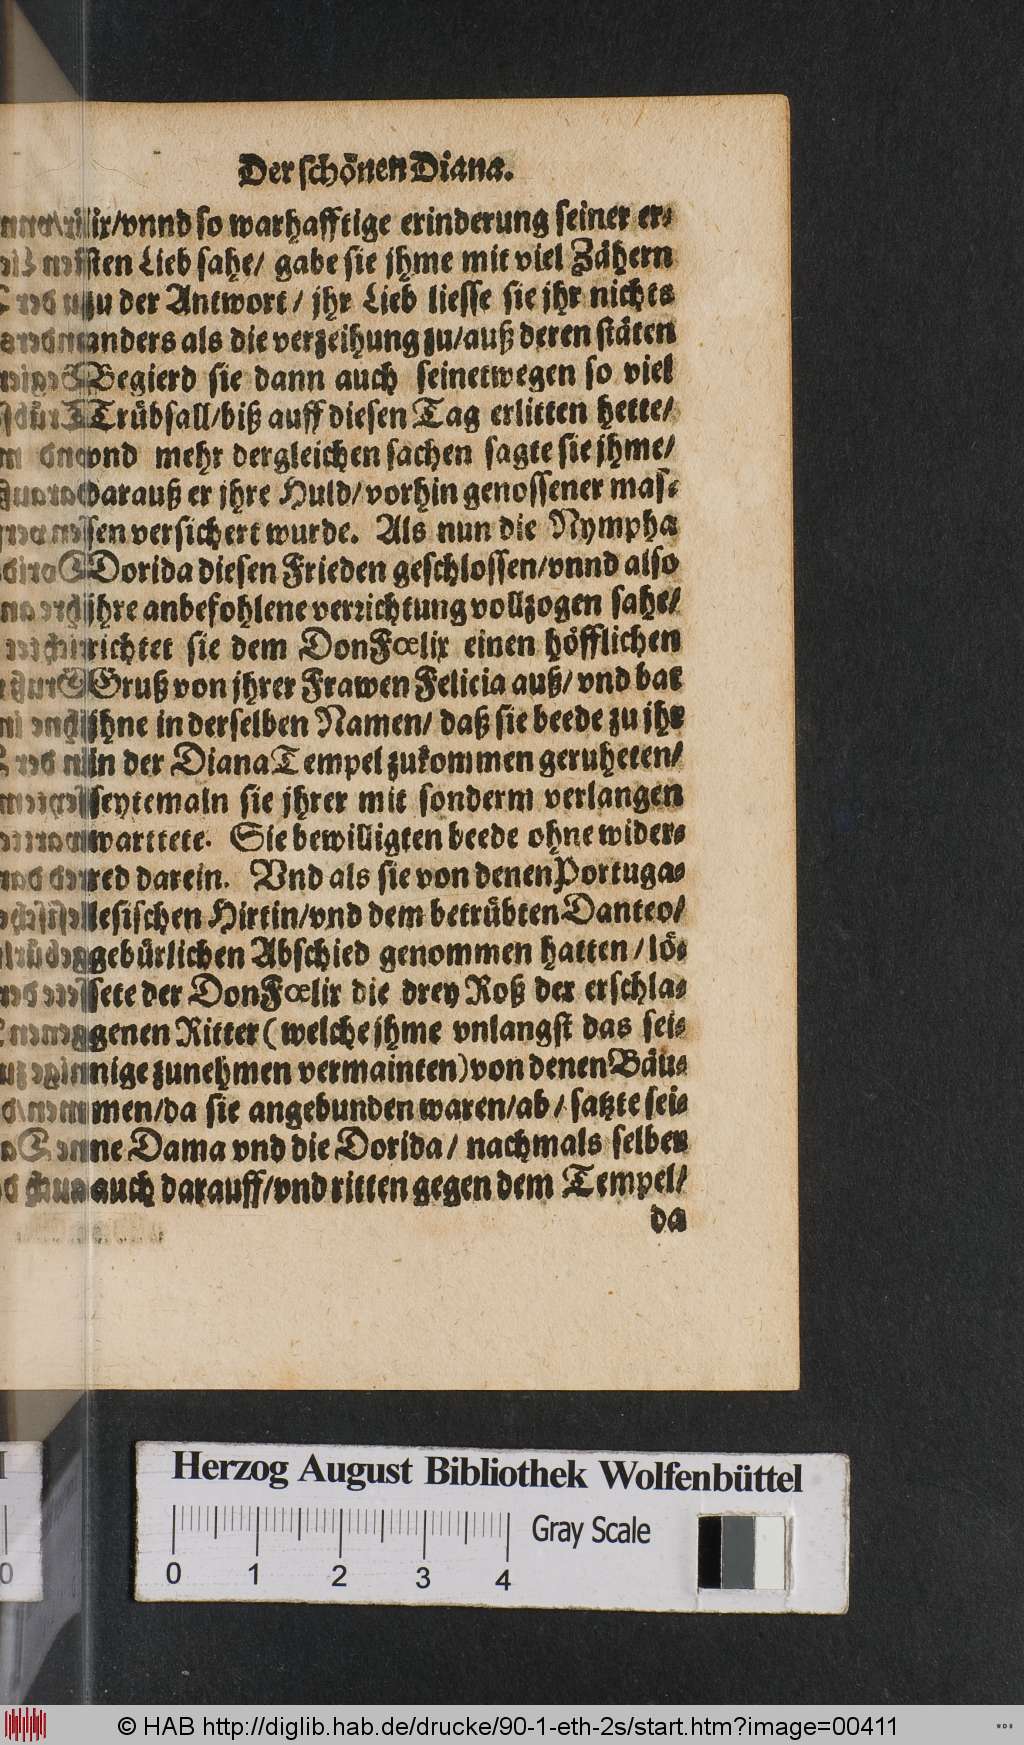 Der schönen Diana.
lix/vnnd so warhafftige erinderung seiner er-
sten Lieb sahe/ gabe sie jhme mit viel Zähern
zu der Antwort/ jhr Lieb liesse sie jhr nichts
anders als die verzeihung zu/auß deren stäten
Begierd sie dann auch seinetwegen so viel
Trübsall/biß auff diesen Tag erlitten hette/
vnd mehr dergleichen sachen sagte sie jhme/
darauß er jhre Huld/vorhin genossener mas-
sen versichert wurde. Als nun die Nympha
Dorida diesen Frieden geschlossen/vnnd also
jhre anbefohlene verrichtung vollzogen sahe/
richtet sie dem Don Fœlix einen höfflichen
Gruß von jhrer Frawen Felicia auß/ vnd bat
jhne in derselben Namen/ daß sie beede zu jhr
in der Diana Tempel zukommen geruheten/
seytemaln sie jhrer mit sonderm verlangen
warttete. Sie bewilligten beede ohne wider-
red darein. Vnd als sie von denen Portuga-
lesischen Hirtin/vnd dem betrübten Danteo/
gebürlichen Abschied genommen hatten/ lö-
sete der Don Fœlix die drey Roß der erschla-
genen Ritter (welche jhme vnlangst das sei-
nige zunehmen vermainten) von denen Bäu-
men/da sie angebunden waren/ab/ satzte sei-
ne Dama vnd die Dorida/ nachmals selber
auch darauff/vnd ritten gegen dem Tempel/
da
Herzog August Bibliothek Wolfenbüttel
Gray Scale
0 1 2 3 4
© HAB http://diglib.hab.de/drucke/90-1-eth-2s/start.htm?image=00411